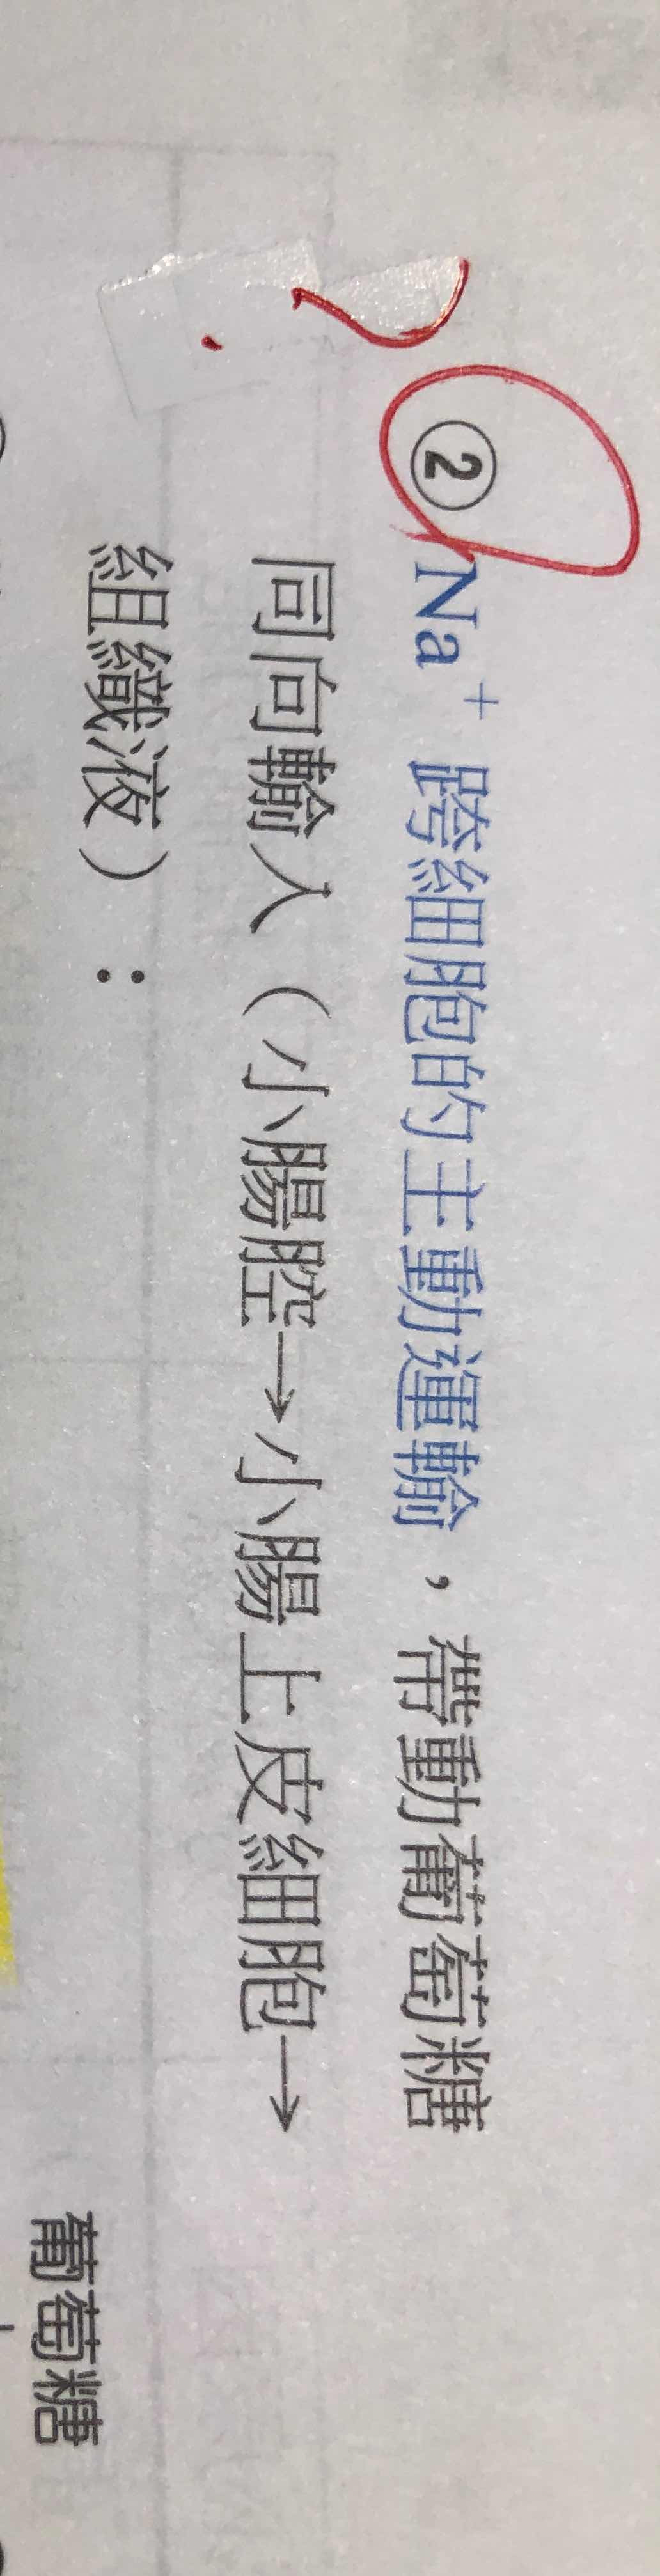 ② Na⁺ 跨細胞的主動運輸，帶動葡萄糖
同向輸入（小腸腔→小腸上皮細胞→
組織液）：
葡萄糖